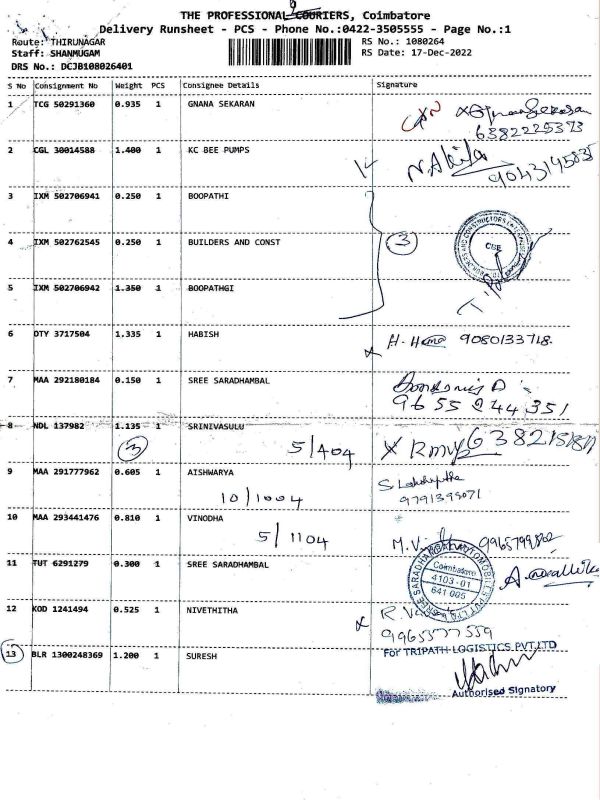 THE PROFESSIONAL COURIERS, Coimbatore
Delivery Runsheet - PCS - Phone No.:0422-3505555 - Page No.:1
Route: THIRUNAGAR RS No.: 1080264
Staff: SHANMUGAM RS Date: 17-Dec-2022
DRS No.: DCJB108026401
S No Consignment No Weight PCS Consignee Details Signature
1 TCG 50291360 0.935 1 GNANA SEKARAN
6382225393
2 CGL 30014588 1.400 1 KC BEE PUMPS
9043145835
3 IXM 502706941 0.250 1 BOOPATHI
4 IXM 502762545 0.250 1 BUILDERS AND CONST 3
CBE
5 IXM 502706942 1.350 1 BOOPATHGI
6 DTY 3717504 1.335 1 HABISH
H. Hema 9080133718.
7 MAA 292180184 0.150 1 SREE SARADHAMBAL
9655244351
8 NDL 137982 1.135 1 SRINIVASULU
3 5/404 X
9 MAA 291777962 0.605 1 AISHWARYA
10/1004 9791399071
10 MAA 293441476 0.810 1 VINODHA
5/1104 M.
11 TUT 6291279 0.300 1 SREE SARADHAMBAL
Coimbatore
4103-01
641 005
12 KOD 1241494 0.525 1 NIVETHITHA
9965377559
13 BLR 1300248369 1.200 1 SURESH
For TRIPATH LOGISTICS PVT.LTD
Authorised Signatory